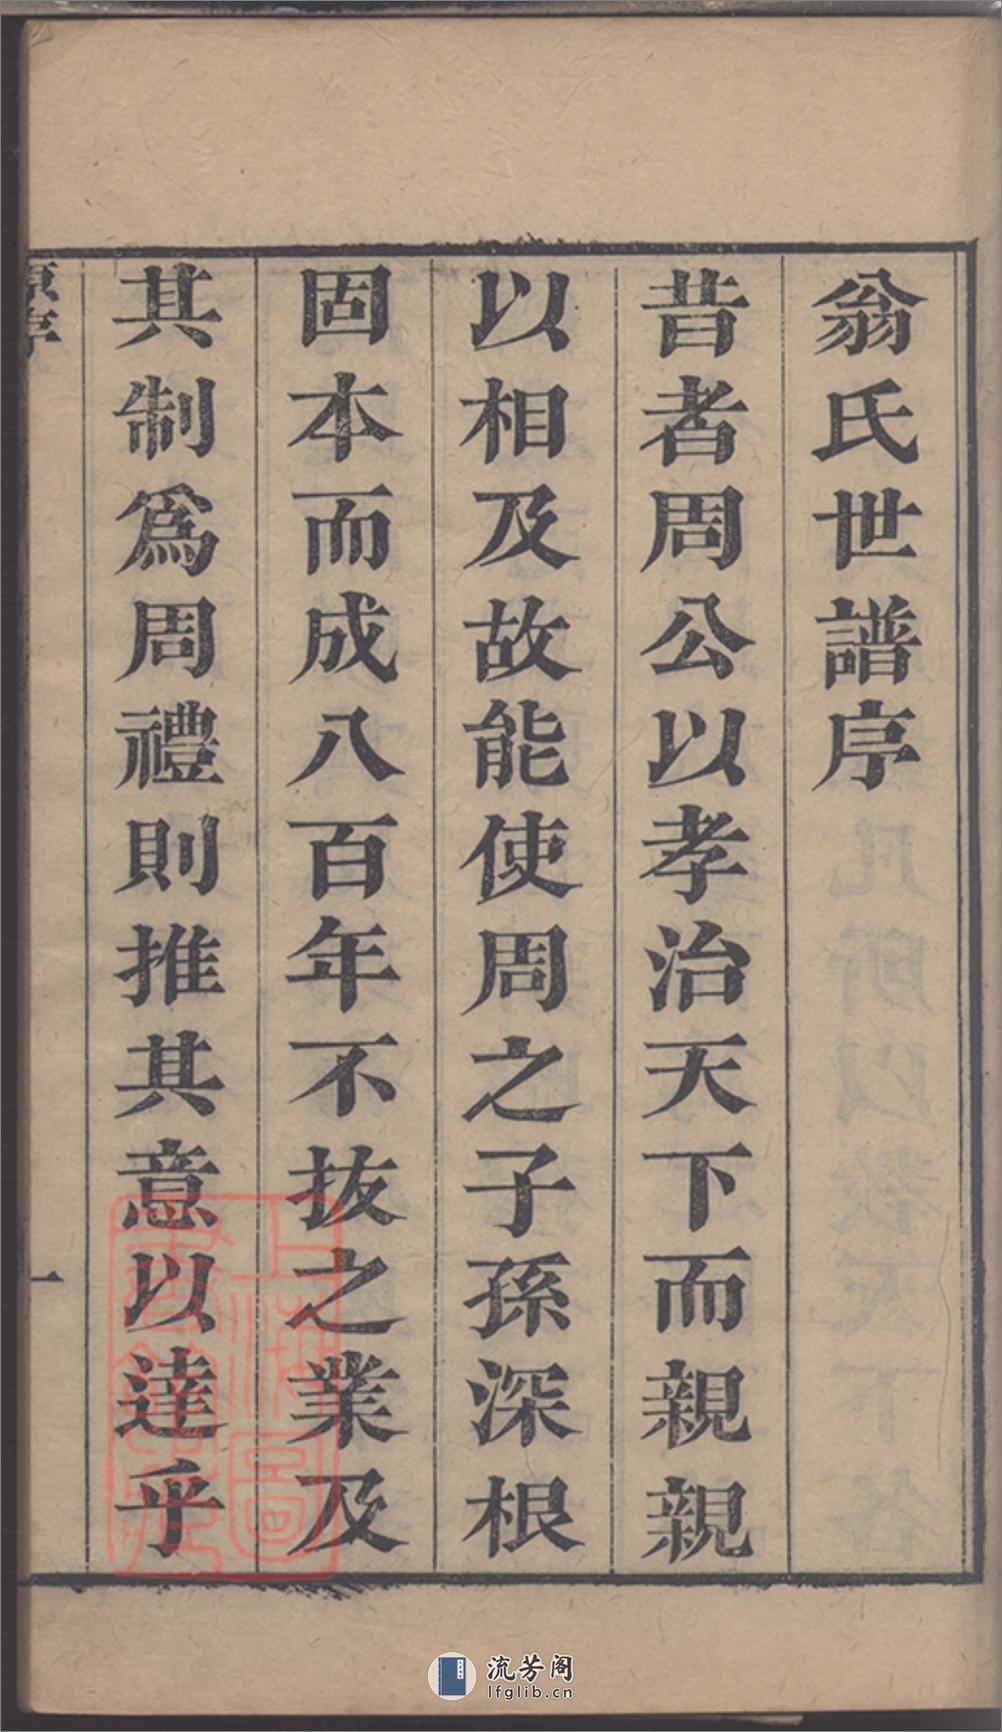 翁氏世譜序
昔者周公以孝治天下而親親
以相及故能使周之子孫深根
固本而成八百年不拔之業及
其制爲周禮則推其意以達乎
原序
一
上海圖書館藏
流芳阁
lfglib.cn